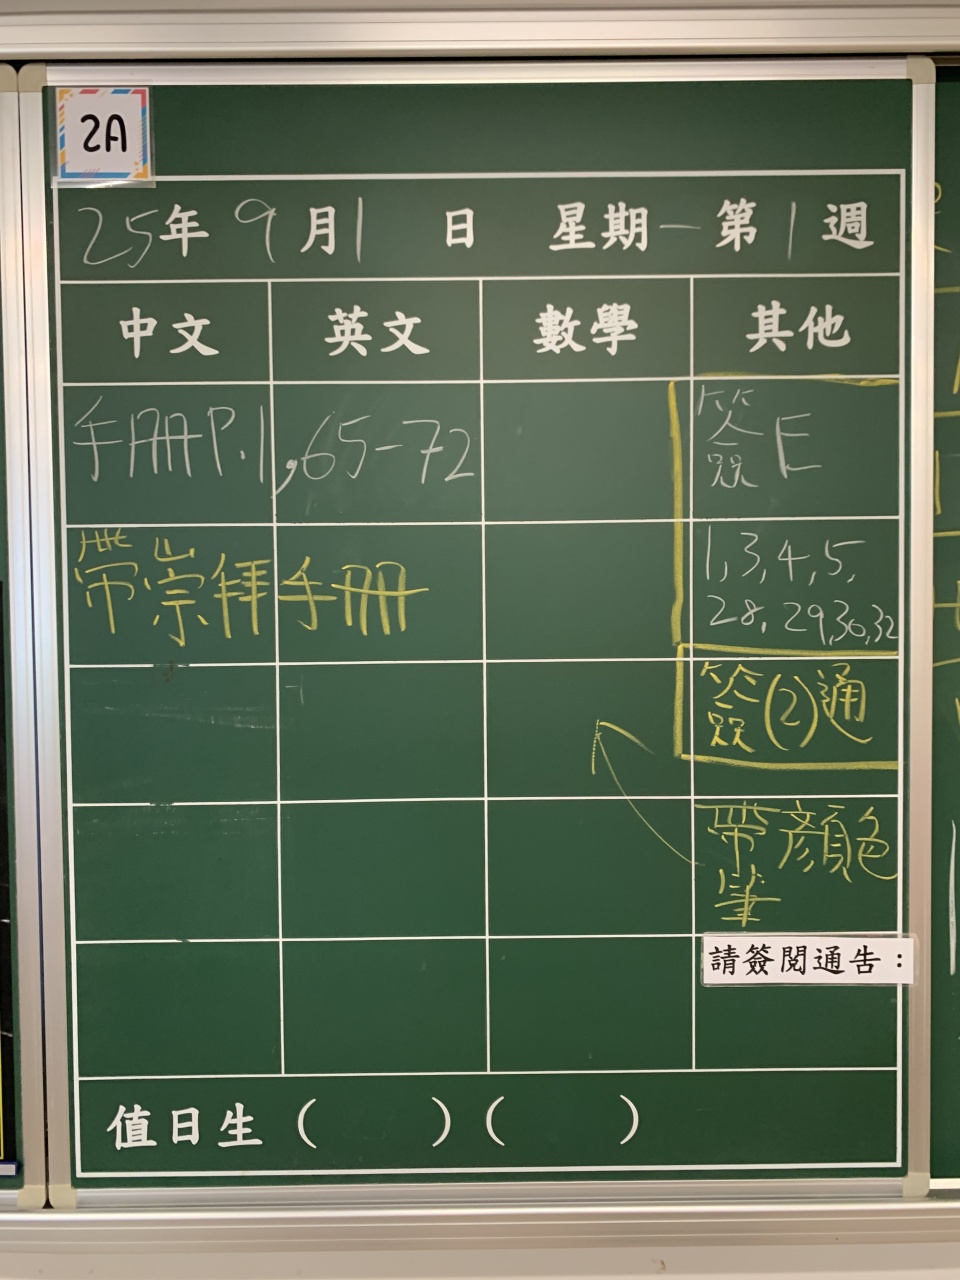 2A
25年9月1日 星期一第1週
中文 英文 數學 其他
手冊P.1,65-72
簽E
帶崇拜手冊
1,3,4,5,
28,29,30,32
簽(2)通
帶顏色
筆
請簽閱通告：
值日生（ ）（ ）